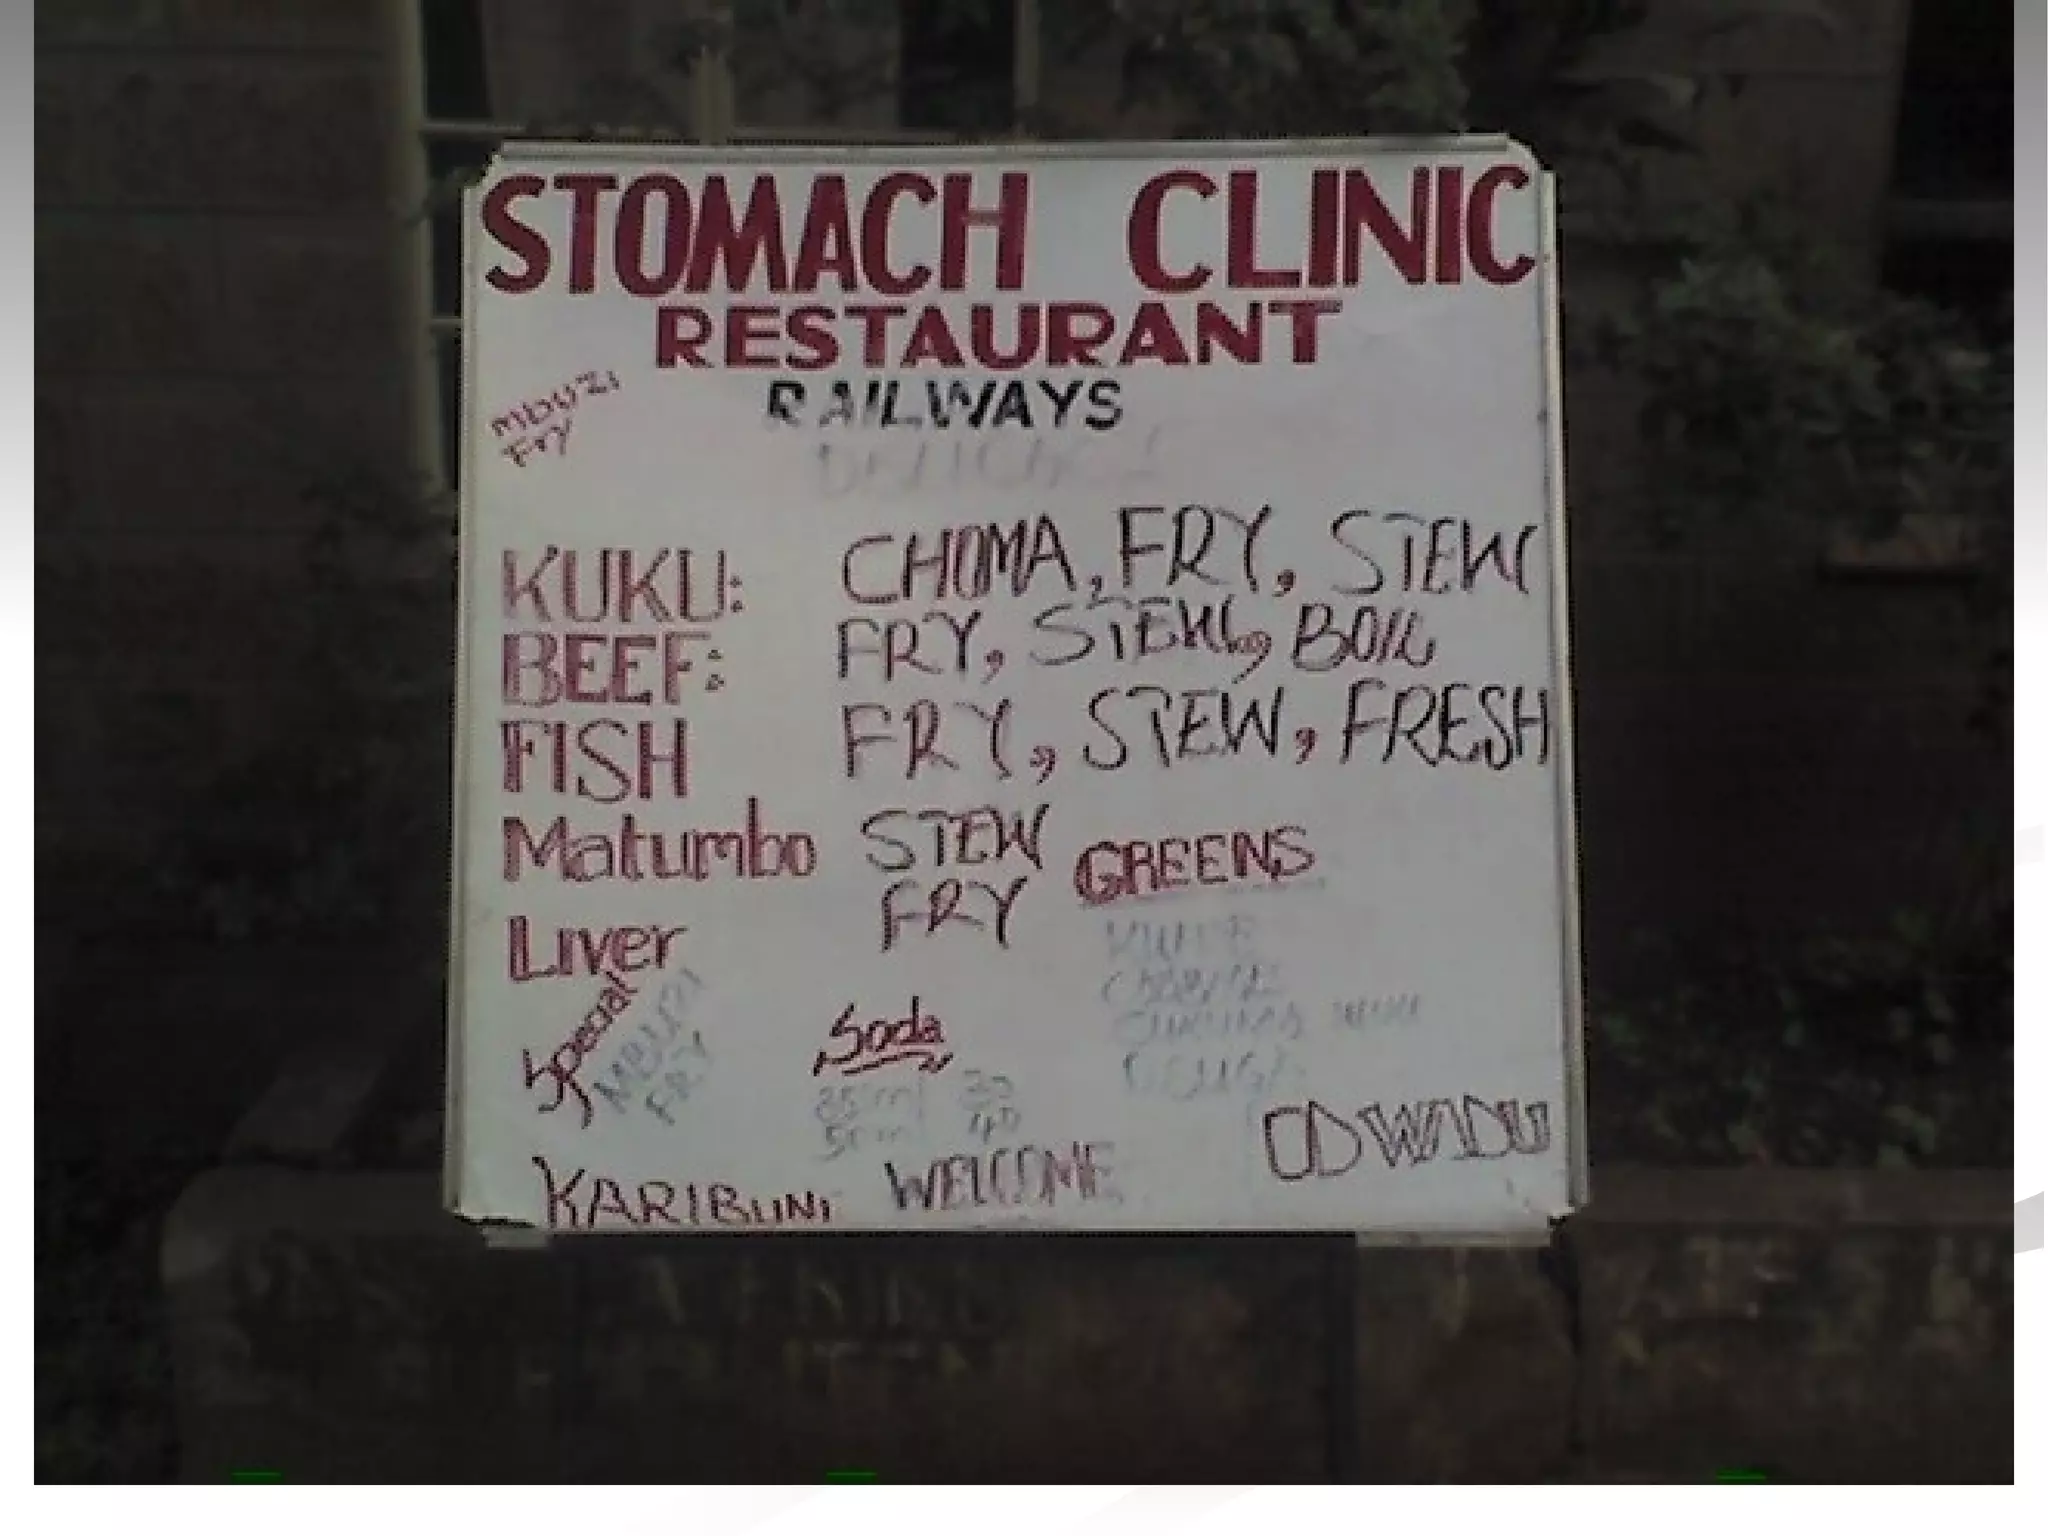 STOMACH CLINIC
RESTAURANT
RAILWAYS
MBUZI
Fry
KUKU: CHOMA, FRY, STEW
BEEF: FRY, STEW, BOIL
FISH FRY, STEW, FRESH
Matumbo STEW GREENS
FRY
Liver
Special
MBUZI
FRY
Soda
40
KARIBUNI WELCOME
ODWADU